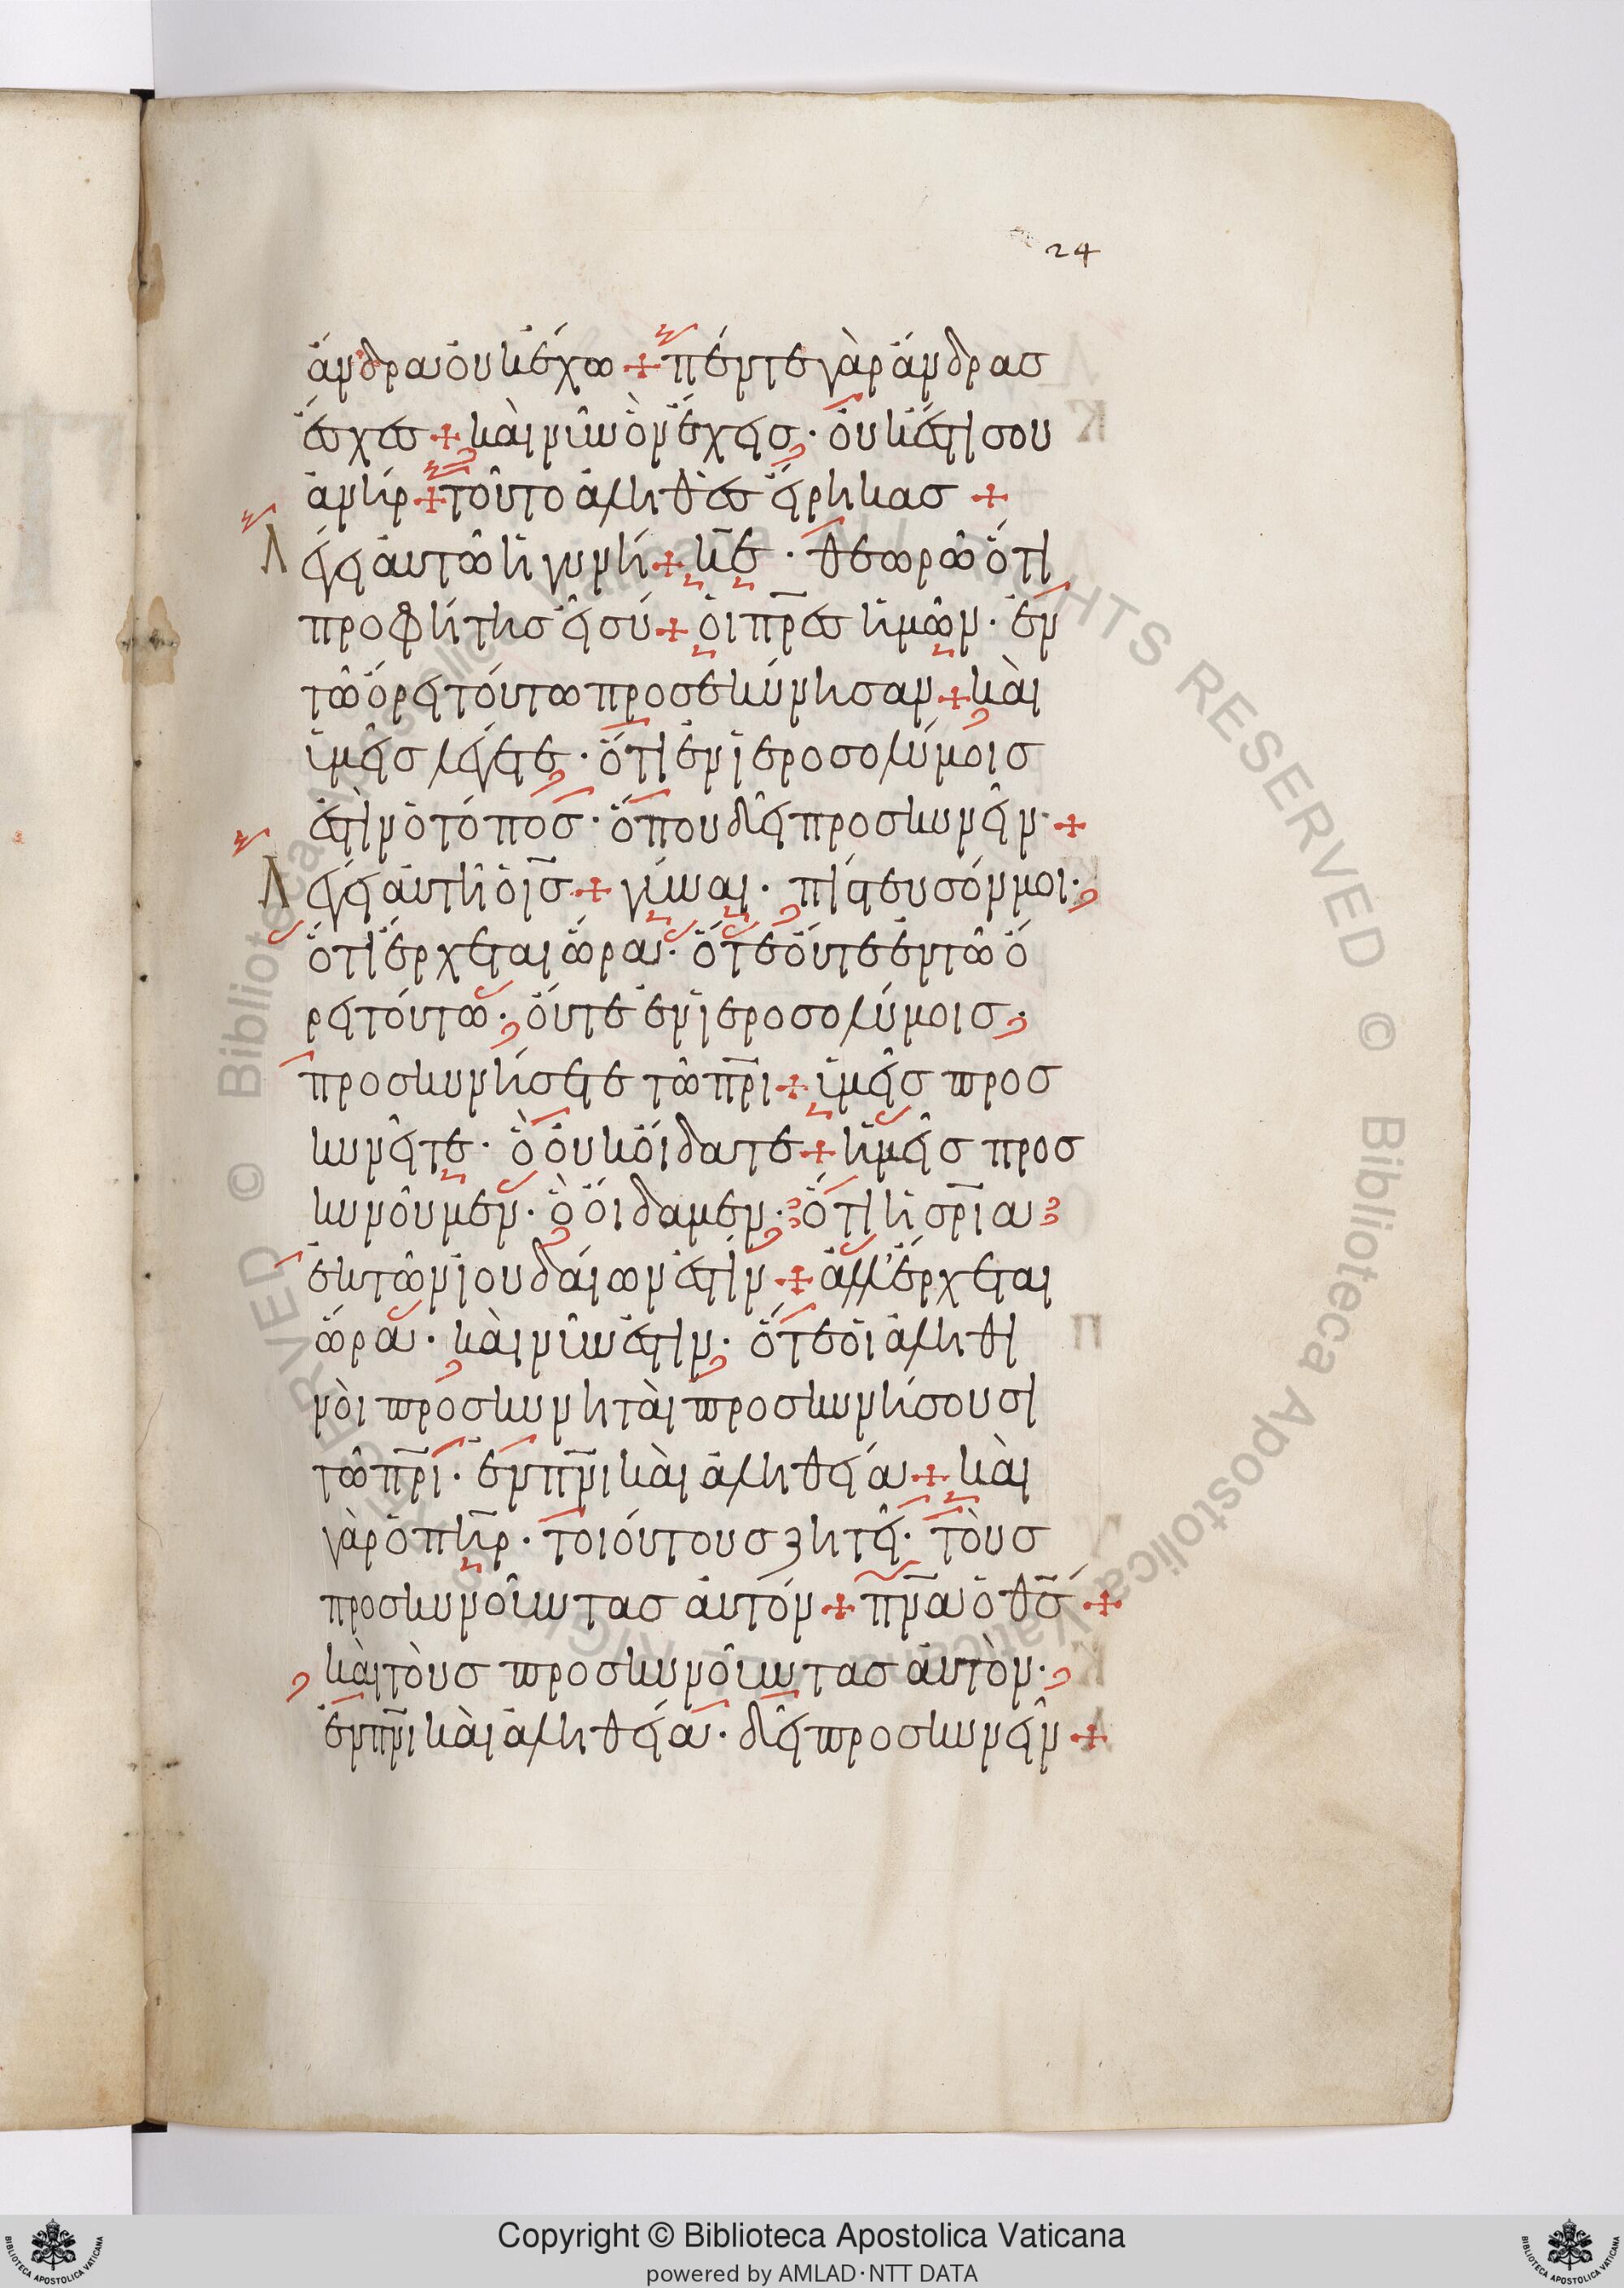 24
ἄνδρα οὐκ ἔχω + πέντε γὰρ ἄνδρας
ἔσχες + καὶ νῦν ὃν ἔχεις · οὐκ ἔστι σου
ἀνήρ + τοῦτο ἀληθὲς εἴρηκας +
Λέγει αὐτῶ ἡ γυνή + κ̅ε̅ · θεωρῶ ὅτι
προφήτης εἶ σύ + οἱ π̅ρ̅ες ἡμῶν · ἐν
τῶ ὄρει τούτω προσεκύνησαν + καὶ
ὑμεῖς λέγετε · ὅτι ἐν ἱεροσολύμοις
ἐστὶν ὁ τόπος · ὅπου δεῖ προσκυνεῖν · +
Λέγει αὐτῆ ὁ ι̅ς̅ + γύναι · πίστευσόν μοι ·
ὅτι ἔρχεται ὥρα · ὅτε οὔτε ἐν τῶ ὄ
ρει τούτω · οὔτε ἐν ἱεροσολύμοις ·
προσκυνήσετε τῶ π̅ρ̅ι + ὑμεῖς προσ
κυνεῖτε · ὃ οὐκ οἴδατε + ἡμεῖς προσ
κυνοῦμεν · ὃ οἴδαμεν · ὅτι ἡ σ̅ρ̅ία
ἐκ τῶν ἰουδαίων ἐστίν + ἀλλ' ἔρχεται
ὥρα · καὶ νῦν ἐστιν · ὅτε οἱ ἀληθι
νοὶ προσκυνηταὶ προσκυνήσουσι
τῶ π̅ρ̅ι · ἐν π̅ν̅ι καὶ ἀληθεία + καὶ
γὰρ ὁ π̅η̅ρ · τοιούτους ζητεῖ · τοὺς
προσκυνοῦντας αὐτόν + π̅ν̅α ὁ θ̅ς̅ +
καὶ τοὺς προσκυνοῦντας αὐτὸν ·
ἐν π̅ν̅ι καὶ ἀληθεία · δεῖ προσκυνεῖν +
© Biblioteca Apostolica Vaticana ALL RIGHTS RESERVED
Copyright © Biblioteca Apostolica Vaticana
powered by AMLAD·NTT DATA